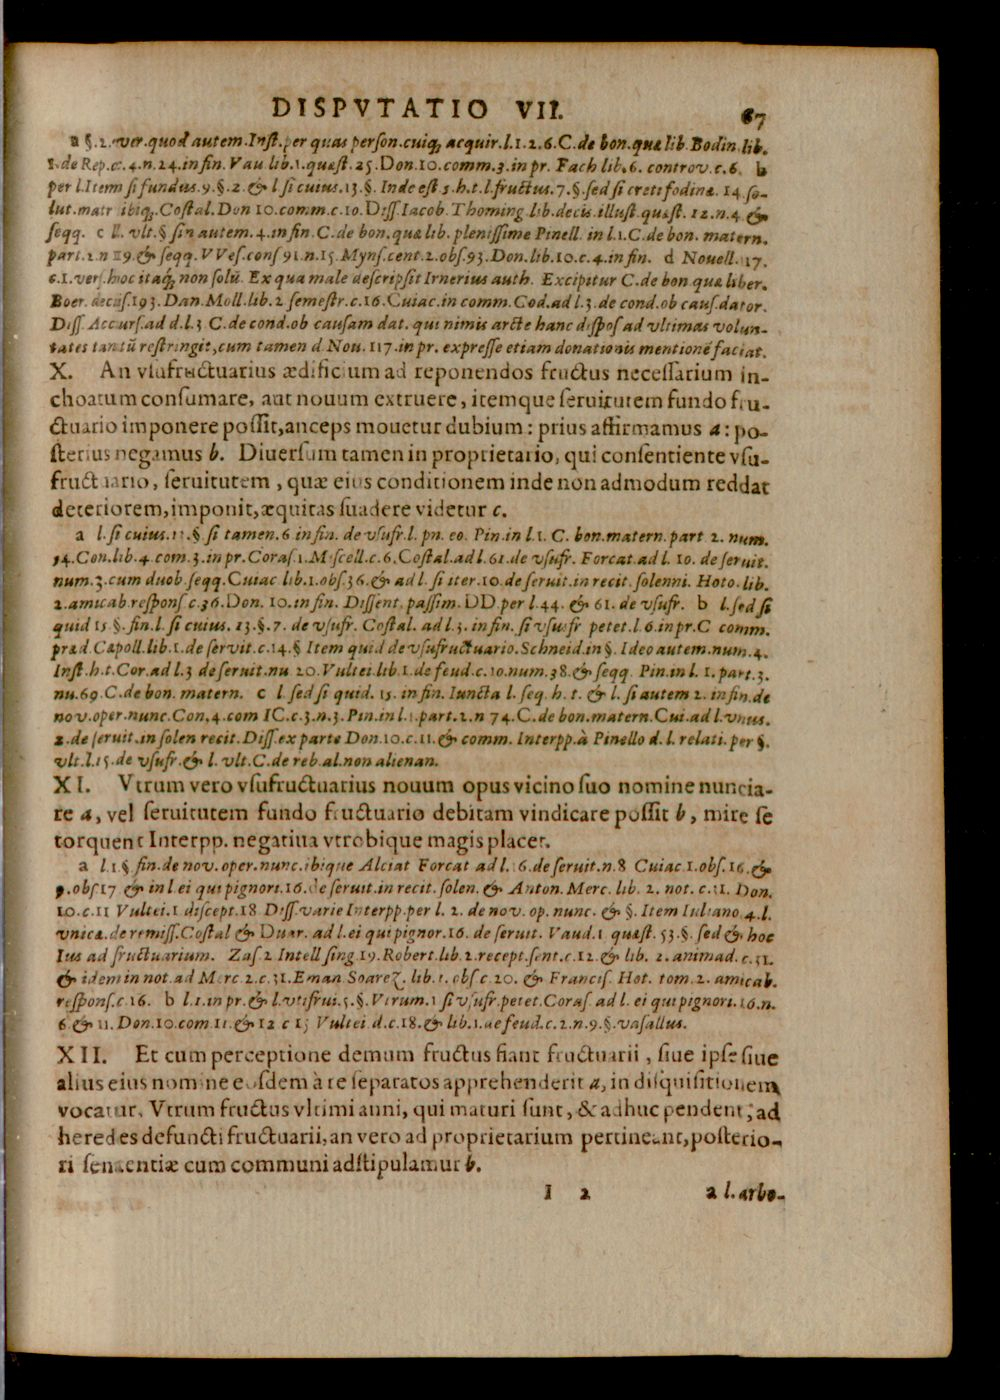 DISPVTATIO VII. 67
a §.2. ver. quod autem. Inſt. per quas perſon. cuiq; acquir. l.1.2.6. C. de bon. quæ lib. Bodin. lib.
1. de Rep. c. 4. n. 24. in fin. Vau lib. 1. quæſt. 25. Don. 10. comm. 3. in pr. Fach lib. 6. controv. c. 6. b
per l. Item ſi fundus. 9. §. 2. & l. ſi cuius. 13. §. Inde eſt 5. h. t. l. fructus. 7. §. ſed ſi cretifodinæ. 14. ſo-
lut. matr ibiq; Coſtal. Don 10. comm. c. 10. Diſſ. Iacob. Thoming. lib. decis. illuſt. quæſt. 12. n. 4 &
ſeqq. c ll. vlt. § ſin autem. 4. in fin. C. de bon. quæ lib. pleniſſime Pinell. in l. 1. C. de bon. matern.
part. 2. n 119. & ſeqq. VVeſ. conſ 91. n. 15. Mynſ. cent. 2. obſ. 93. Don. lib. 10. c. 4. in fin. d Nouell. 17.
c. 1. verſ. hoc itaq; non ſolũ. Ex qua male deſcripſit Irnerius auth. Excipitur C. de bon. quæ liber.
Boer. deciſ. 193. Dan. Moll. lib. 2 ſemeſtr. c. 16. Cuiac. in comm. Cod. ad l. 3. de cond. ob cauſ. dator.
Diſſ. Accurſ. ad d. l. 3 C. de cond. ob cauſam dat. qui nimis arcte hanc diſpoſ ad vltimas volun-
tates tantũ reſtringit, cum tamen d. Nou. 117. in pr. expreſſe etiam donationis mentionẽ faciat.
X. An vſufructuarius ædificium ad reponendos fructus neceſſarium in-
choatum conſumare, aut nouum extruere, itemque ſeruitutem fundo fru-
ctuario imponere poſſit, anceps mouetur dubium: prius affirmamus a: po-
ſterius negamus b. Diuerſum tamen in proprietario, qui conſentiente vſu-
fructuario, ſeruitutem, quæ eius conditionem inde non admodum reddat
deteriorem, imponit, æquitas ſuadere videtur c.
a l. ſi cuius. 13. §. ſi tamen. 6 in fin. de vſufr. l. pn. eo. Pin. in l. 1. C. bon. matern. part 2. num.
74. Con. lib. 4. com. 3. in pr. Coraſ. 1. Miſcell. c. 6. Coſtal. ad l. 61. de vſufr. Forcat. ad l. 10. de ſeruit.
num. 3. cum duob. ſeqq. Cuiac lib. 1. obſ. 36. & ad l. ſi iter. 10. de ſeruit. in recit. ſolenni. Hoto. lib.
2. amicab. reſponſ. c. 36. Don. 10. in fin. Diſſent. paſſim. DD. per l. 44. & 61. de vſufr. b l. ſed ſi
quid 15 §. fin. l. ſi cuius. 13. §. 7. de vſufr. Coſtal. ad l. 3. in fin. ſi vſusfr petet. l. 6. in pr. C comm.
præd. Cæpoll. lib. 1. de ſervit. c. 14. § Item quid de vſufructuario. Schneid. in §. Ideo autem. num. 4.
Inſt. h. t. Cor. ad l. 3 de ſeruit. nu 20. Vultei. lib. 1. de feud. c. 10. num. 38. & ſeqq. Pin. in l. 1. part. 3.
nu. 69. C. de bon. matern. c l. ſed ſi quid. 15. in fin. Iuncta l. ſeq. h. t. & l. ſi autem 2. in fin. de
nov. oper. nunc. Con. 4. com IC. c. 3. n. 3. Pin. in l. 1. part. 2. n 74. C. de bon. matern. Cui. ad l. vnus.
2. de ſeruit. in ſolen recit. Diſſ. ex parte Don. 10. c. 11. & comm. Interpp. à Pinello d. l. relati. per §.
vlt. l. 15. de vſufr. & l. vlt. C. de reb. al. non alienan.
XI. Vtrum vero vſufructuarius nouum opus vicino ſuo nomine nuncia-
re a, vel ſeruitutem fundo fructuario debitam vindicare poſſit b, mire ſe
torquent Interpp. negatiua vtrobique magis placet.
a l. 1 § fin. de nov. oper. nunc. ibique Alciat Forcat ad l. 16. de ſeruit. n. 8 Cuiac 1. obſ. 16. &
9. obſ 17 & in l ei qui pignori. 16. de ſeruit. in recit. ſolen. & Anton. Merc. lib. 2. not. c. 31. Don.
10. c. 11 Vultei. 1 diſcept. 18 Diſſ. varie Interpp. per l. 2. de nov. op. nunc. & §. Item Iuliano. 4. l.
vnica. de remiſſ. Coſtal & Duar. ad l. ei qui pignor. 16. de ſeruit. Vaud. 1 quæſt. 53. §. ſed & hoc
Ius ad fructuarium. Zaſ. 2 Intell ſing. 19. Robert. lib. 2. recept. ſent. c. 12. & lib. 2. animad. c. 31.
& idem in not. ad Merc. 2. c. 31. Eman Soarez. lib. 1. obſ c. 20. & Franciſ. Hot. tom. 2. amicab.
reſponſ. c. 16. b l. 1. in pr. & l. vti frui. 5. §. Vtrum. 1 ſi vſufr. petet. Coraſ. ad l. ei qui pignori. 16. n.
6 & 11. Don. 10. com. 11. & 12 c 15 Vultei d. c. 18. & lib. 1. de feud. c. 2. n. 9. §. vaſallus.
XII. Et cum perceptione demum fructus fiant fructuarii, ſiue ipſe ſiue
alius eius nomine eoſdem à re ſeparatos apprehenderit a, in diſquiſitionem
vocatur, Vtrum fructus vltimi anni, qui maturi ſunt, & adhuc pendent, ad
heredes defuncti fructuarii, an vero ad proprietarium pertineant, poſterio-
ri ſententiæ cum communi adſtipulamur b.
I 2 a l. arbo-